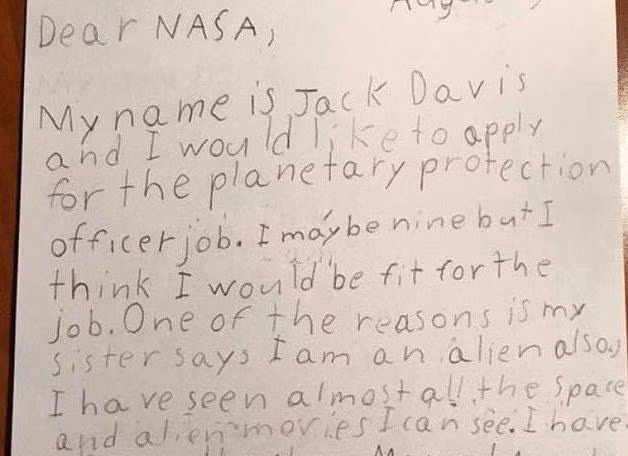 Dear NASA,
My name is Jack Davis
and I would like to apply
for the planetary protection
officer job. I may be nine but I
think I would be fit for the
job. One of the reasons is my
sister says I am an alien also,
I have seen almost all the space
and alien movies I can see. I have